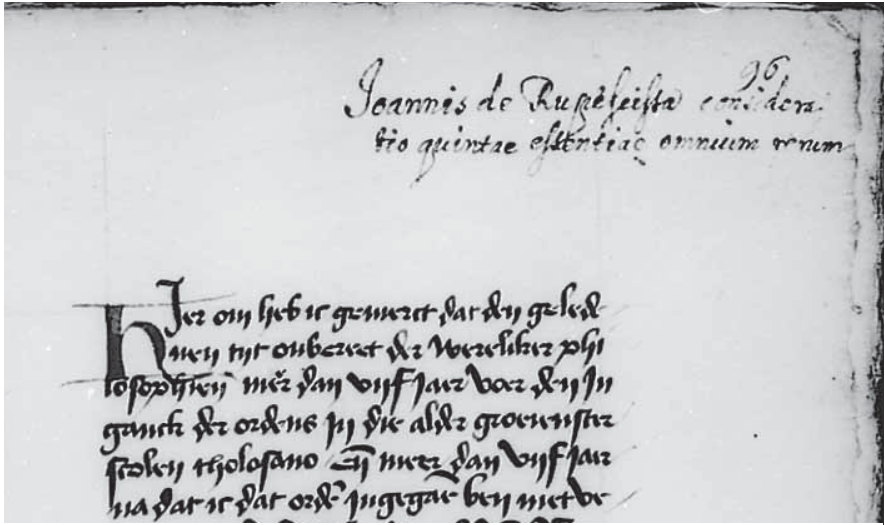 96
Joannis de Rupescissa considera
tio quintae essentiae omnium rerum
Hier om heb ic gemerct dat den gelede
nen tyt onbereet der wereliker phi
losophien mer dan vijf jaer voer den in
ganck der ordens in die alder groeienster
scolen tholosano en̄ meer dan vijf jaer
na dat ic dat ordē ingegaē ben met ve